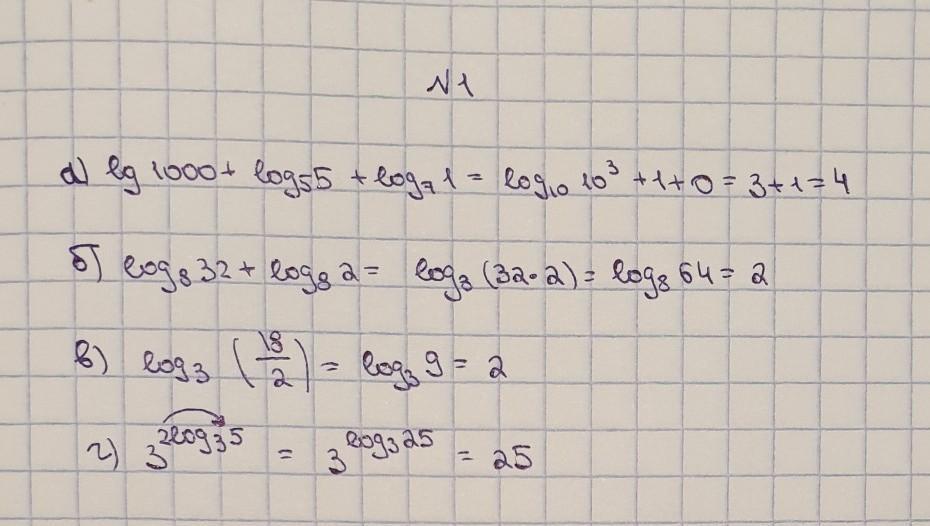 №1
а) lg 1000 + log₅5 + log₇1 = log₁₀ 10³ + 1 + 0 = 3 + 1 = 4
б) log₈32 + log₈2 = log₈(32·2) = log₈64 = 2
в) log₃(18/2) = log₃9 = 2
г) 3^(2log₃5) = 3^(log₃25) = 25